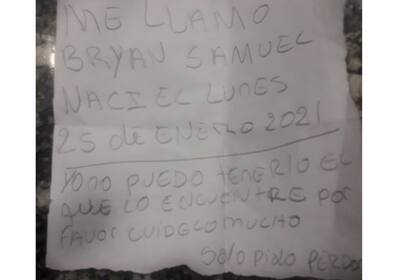 ME LLAMO
BRYAN SAMUEL
NACI EL LUNES
25 de ENERO 2021
YO NO PUEDO TENERLO EL
QUE LO ENCUENTRE POR
FAVOR CUIDELO MUCHO
SOLO PIDO PERDO